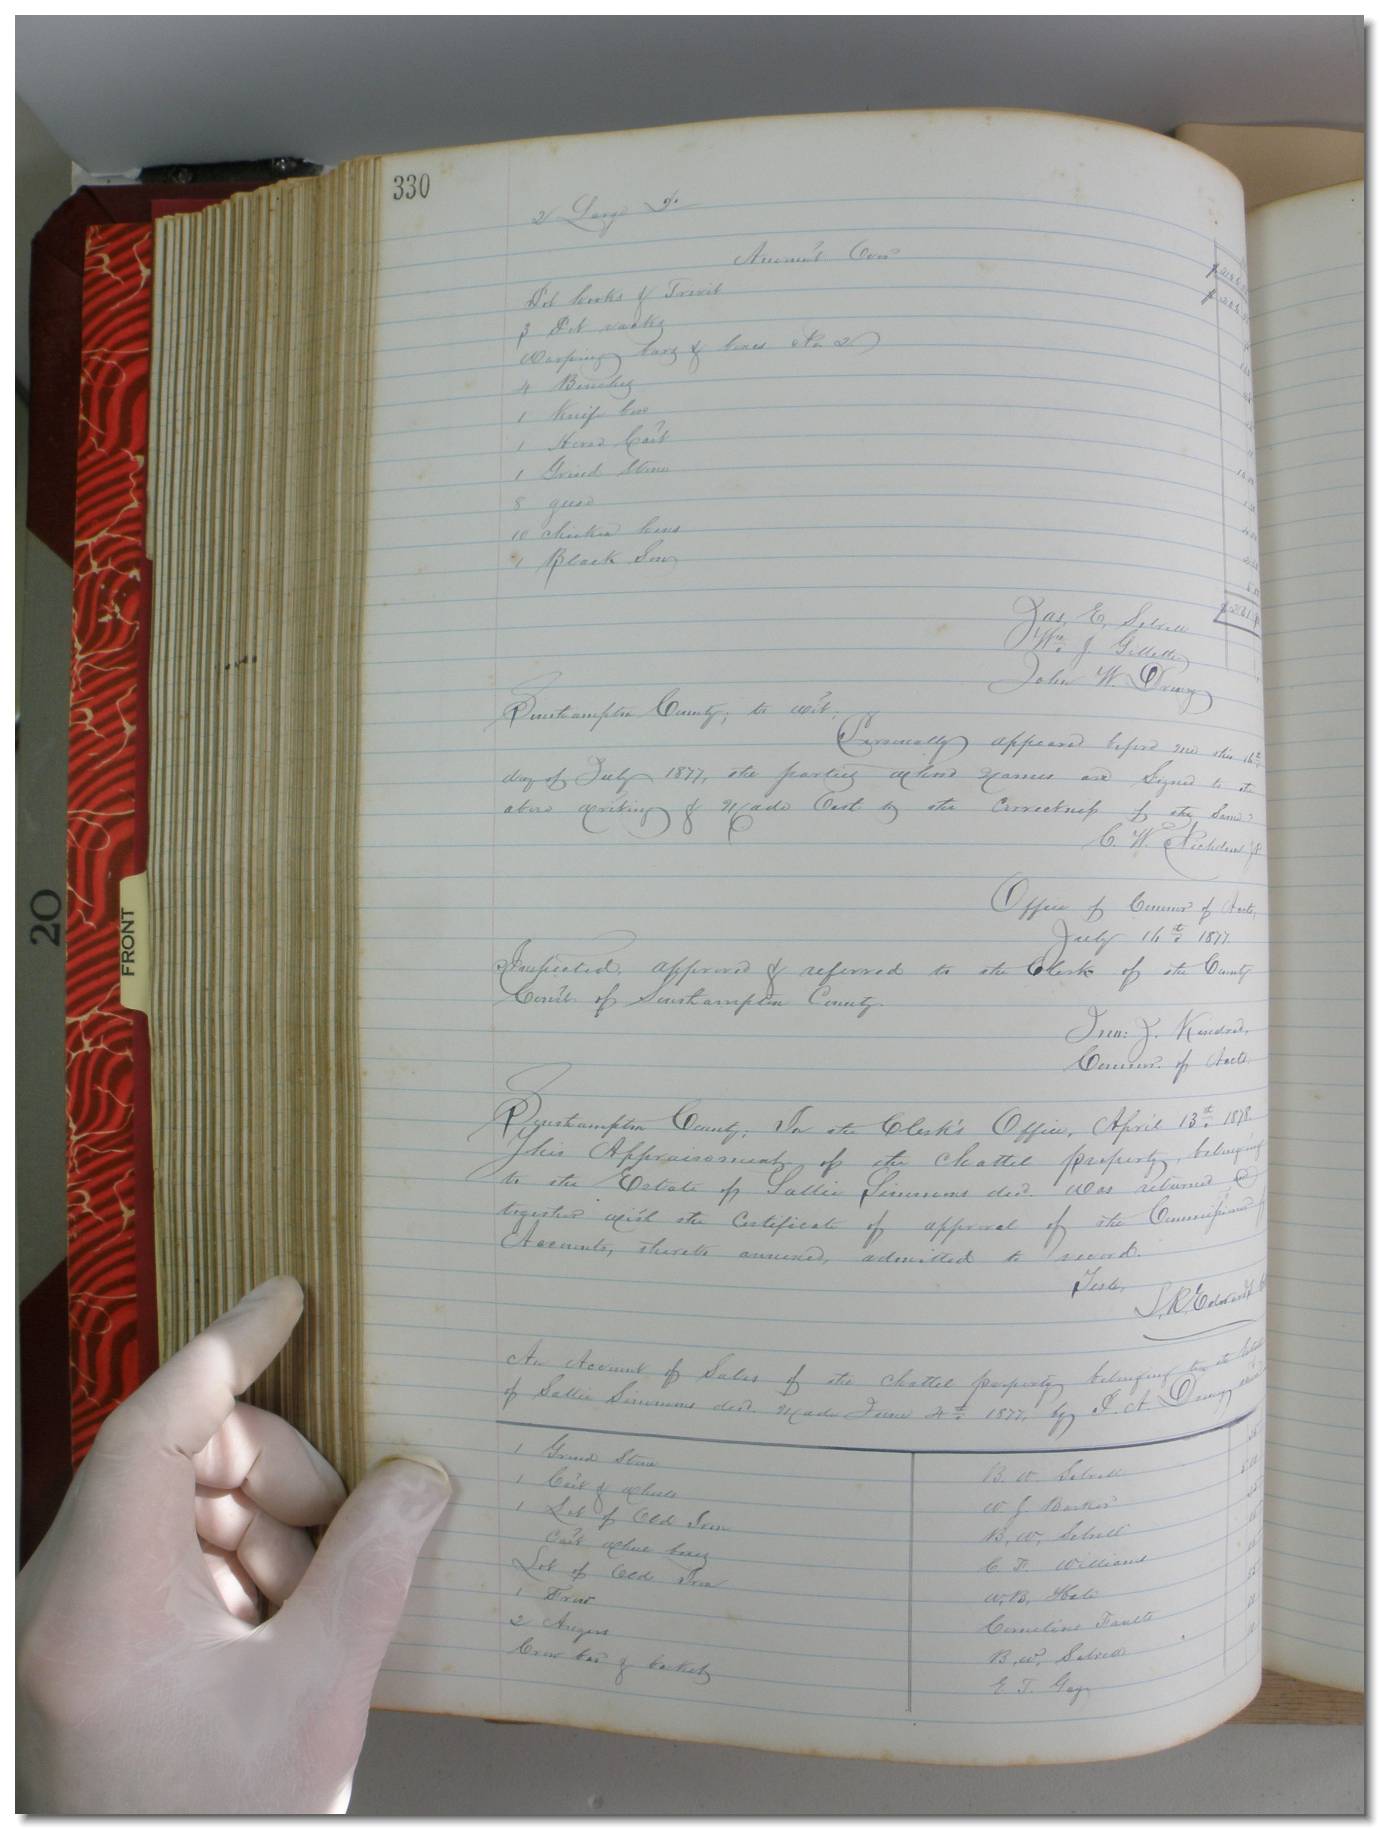 330
2 Large Do
Amount Over
Pot hooks & Trivit
3 Pot racks
Warping bars & boxes No 2
4 Benches
1 Knife box
1 Horse Cart
1 Grind Stone
8 geese
10 chicken hens
1 Black Sow
Jas. E. Sebrell
Wm J Gillette
John W. Drewry
Southampton County; to wit:
Personally appeared before me this 16th
day of July 1877, the parties whose names are Signed to the
above writing & made Oath to the correctness of the same
C. W. Nicholson
Office of Commr of Accts,
July 16th 1877
Inspected, approved & referred to the Clerk of the County
Court of Southampton County.
Jno: J. Kindred,
Commr. of Accts.
Southampton County; In the Clerk's Office, April 13th 1878.
This Appraisement of the chattel property, belonging
to the Estate of Sallie Simmons decd. was returned &
together with the certificate of approval of the Commissioner of
Accounts, thereto annexed, admitted to record.
Teste,
L. R. Edwards
An Account of Sales of the chattel property belonging to the Estate
of Sallie Simmons decd. made June 4th 1877, by Drewry
1 Grind Stone B. W. Sebrell
1 Cart & wheels W J Barker
1 Lot of Old Iron B. W. Sebrell
Cart wheel boxes C. F. Williams
Lot of Old Iron W. B.
1 Frow Faulk
2 Augers B. W. Sebrell
Crow bar & baskets E T. Gay
20
FRONT